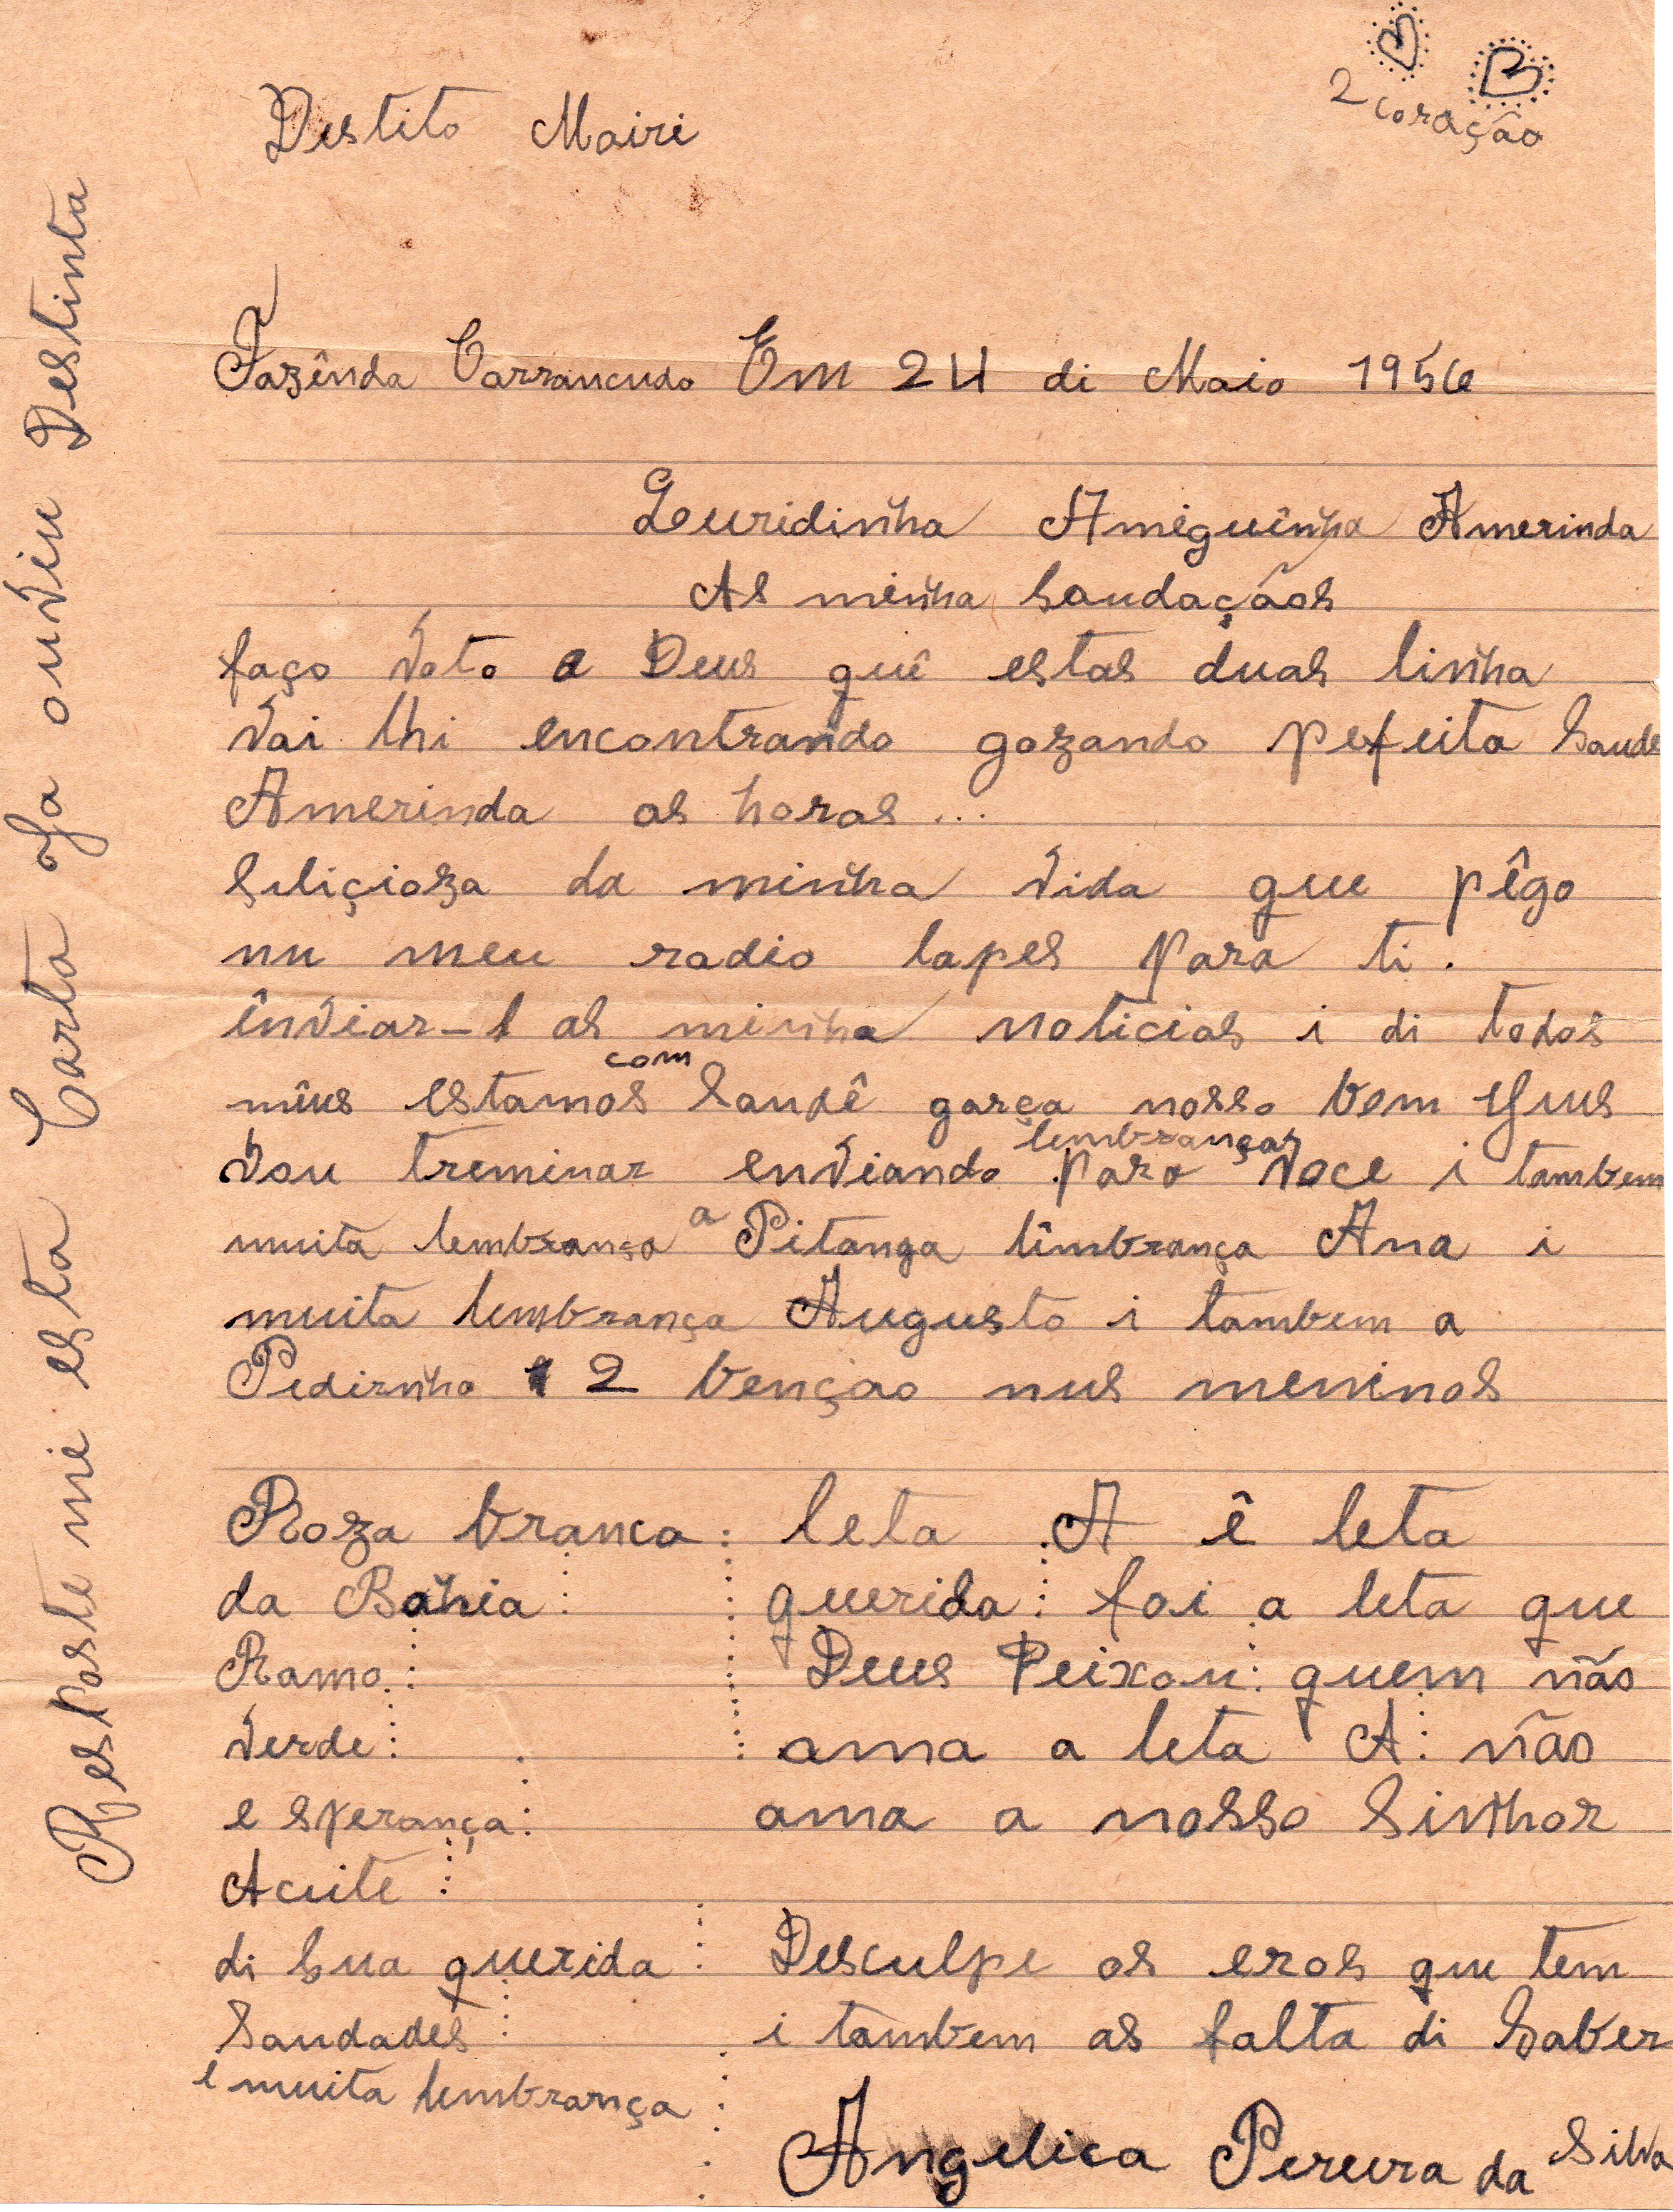 2 coração
Destito Mairi
Fazênda Carrancudo Em 24 di Maio 1956
Queridinha Amiguinha Amerinda
As minha saudaçãos
faço Voto a Deus quê estas duas linha
Vai lhi encontrando gozando pefeita Saude
Amerinda as horas...
Seliçioza da minha vida que pêgo
nu meu radio lapes para ti.
înviar-l as minha noticias i di todos
mêus estamos com Saudê garça nosso bom
Vou treminar enviando lembranças para voce i tambem
muita lembrança a Pitanga lêmbrança Ana i
muita lembrança Augusto i tambem a
Pedirnho 12 bençao nus meninos
Roza branca:
da Bahia:
Ramo:
Verde:
esperança:
Aceite:
di sua querida:
Saudades:
e muita lembrança:
leta A ê leta
querida: foi a leta que
Deus Peixou: quem não
ama a leta A: não
ama a nosso Sinhor
Desculpe os eros que tem
i tambem as falta di Saber
Angelica Pereira da Silva
Resposte mi esta Carta Ja ouviu Destinta